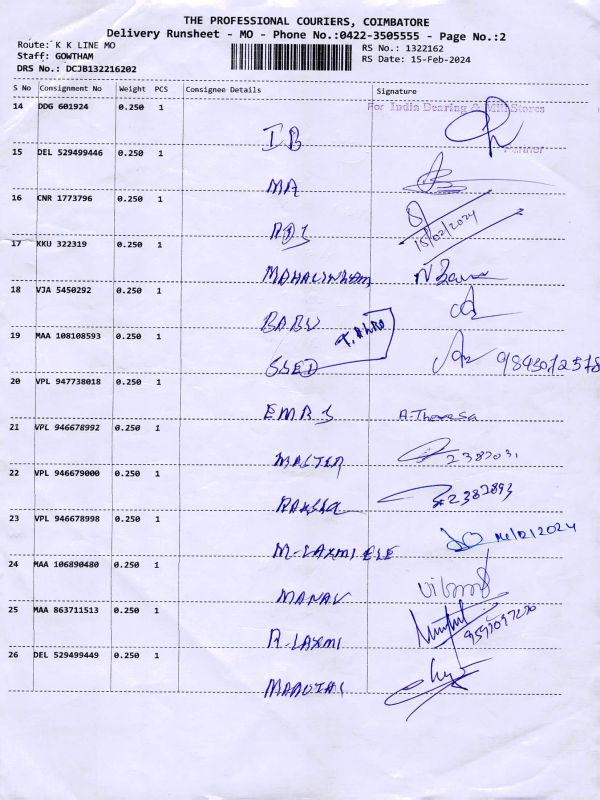 THE PROFESSIONAL COURIERS, COIMBATORE
Delivery Runsheet - MO - Phone No.:0422-3505555 - Page No.:2
Route: K K LINE MO
RS No.: 1322162
Staff: GOWTHAM
RS Date: 15-Feb-2024
DRS No.: DCJB132216202
S No Consignment No Weight PCS Consignee Details Signature
14 DDG 601924 0.250 1
For India Bearing & Mill Stores
IB
Partner
15 DEL 529499446 0.250 1
MA
16 CNR 1773796 0.250 1
15/02/2024
17 KKU 322319 0.250 1
MAHALINGAM
18 VJA 5450292 0.250 1
BABU
19 MAA 108108593 0.250 1
SSED
20 VPL 947738018 0.250 1
EMBS A. Theresa
21 VPL 946678992 0.250 1
MASTER 2382031
22 VPL 946679000 0.250 1
2382893
23 VPL 946678998 0.250 1
M-LAXMI ELE
24 MAA 106890480 0.250 1
MANAV
25 MAA 863711513 0.250 1
R-LAXMI
26 DEL 529499449 0.250 1